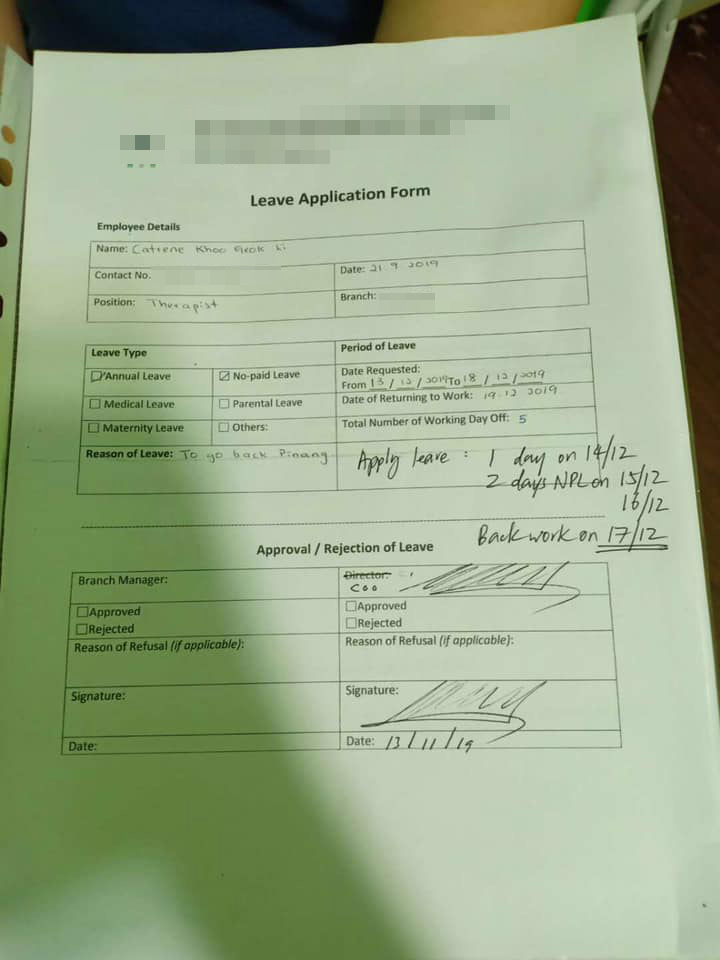 Leave Application Form
Employee Details
Name: Catrene Khoo Geok Li
Contact No.
Date: 21.9 2019
Position: Therapist
Branch:
Leave Type
Period of Leave
Annual Leave
No-paid Leave
Date Requested:
From 13 / 12 / 2019 To 18 / 12 / 2019
Medical Leave
Parental Leave
Date of Returning to Work: 19.12 2019
Maternity Leave
Others:
Total Number of Working Day Off: 5
Reason of Leave: To go back Pinang
Apply leave : 1 day on 14/12
2 days NPL on 15/12
16/12
Back work on 17/12
Approval / Rejection of Leave
Branch Manager:
Director:
COO
Approved
Rejected
Approved
Rejected
Reason of Refusal (if applicable):
Reason of Refusal (if applicable):
Signature:
Signature:
Date:
Date: 13/11/19